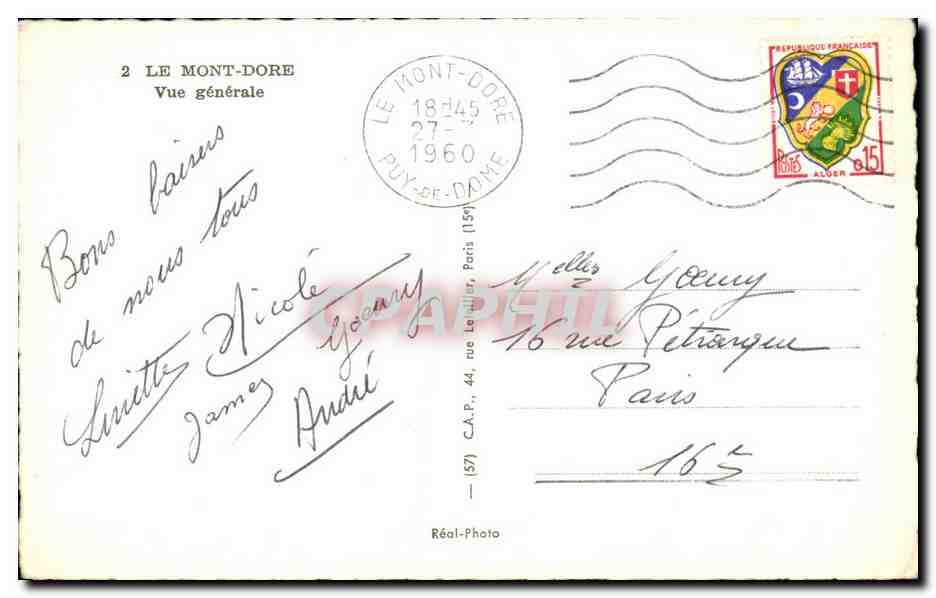 2 LE MONT-DORE
Vue générale
LE MONT-DORE
18H45
27-
1960
PUY-DE-DOME
REPUBLIQUE FRANÇAISE
POSTES
ALGER
0,15
Bons baisers
de nous tous
Nicole
James
André
(57) C.A.P., 44, rue Letellier, Paris (15e)
Melles
16 rue Pétrarque
Paris
16e
Réal-Photo
CPAPHIL